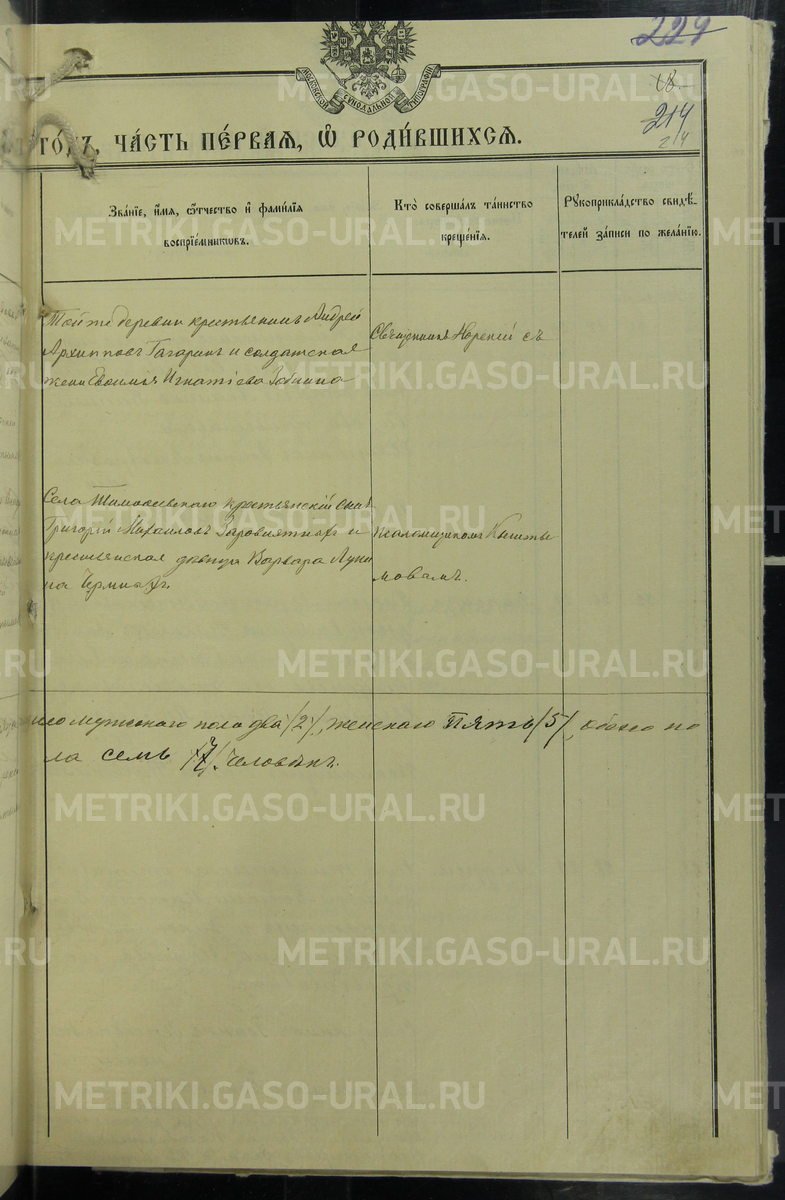 229
МОСКОВСКОЙ СѴНОДАЛЬНОЙ ТИПОГРАФІИ
18.
214
214
го́дъ, ча́сть пе́рваѧ, ѡ҆ роди́вшихсѧ.
Зва́ніе, и҆́мѧ, ѻ҆́тчество и҆ фами́лїѧ
воспрїе́мниковъ.
Кто̀ соверша́лъ та́инство
креще́нїѧ.
Рꙋкоприкла́дство свидѣ́-
телей за́писи по жела́нїю.
Той же деревни крестьянинъ Андрей
Архиповъ Гагаринъ и солдатская
жена Евфимія Игнатіева
Священникъ съ
Села крестьянскій сынъ
Григорій Михаиловъ и
крестьянская дѣвица Варвара Луки
на
псаломщикомъ Кышты
мовымъ.
мужескаго пола два /2/, женскаго пять /5/, обоего по
ла семь /7/ человѣкъ.
METRIKI.GASO-URAL.RU